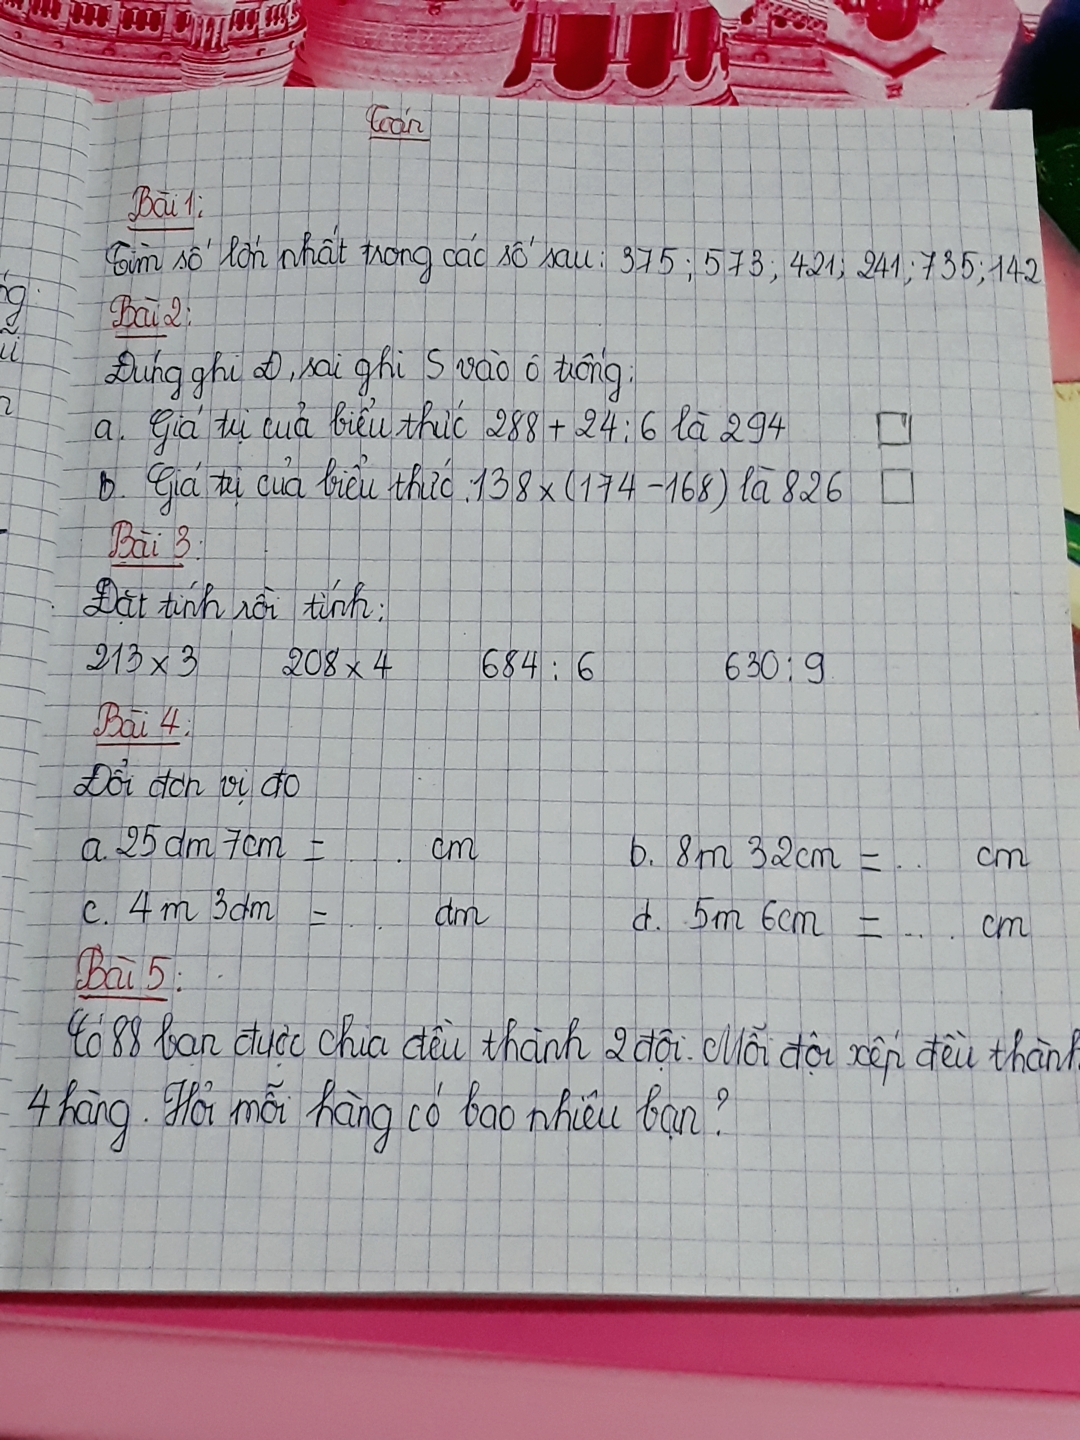 Toán
Bài 1:
Tìm số lớn nhất trong các số sau: 375; 573; 421; 241; 735; 142
Bài 2:
Đúng ghi Đ, sai ghi S vào ô trống:
a. Giá trị của biểu thức 288 + 24 : 6 là 294
b. Giá trị của biểu thức: 138 x (174 - 168) là 826
Bài 3:
Đặt tính rồi tính:
213 x 3 208 x 4 684 : 6 630 : 9
Bài 4:
Đổi đơn vị đo
a. 25dm 7cm = ... cm b. 8m 32cm = ... cm
c. 4m 3dm = ... dm d. 5m 6cm = ... cm
Bài 5:
Có 88 bạn được chia đều thành 2 đội. Mỗi đội xếp đều thành
4 hàng. Hỏi mỗi hàng có bao nhiêu bạn?